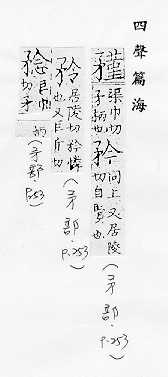 四聲篇海
𥎊渠巾切矛柄也矜同上又居陵切自賢也(矛部·P.253)
矝居陵切矜憐也又巨斤切(矛部·P.253)
巨巾切矛柄(矛部·P.253)